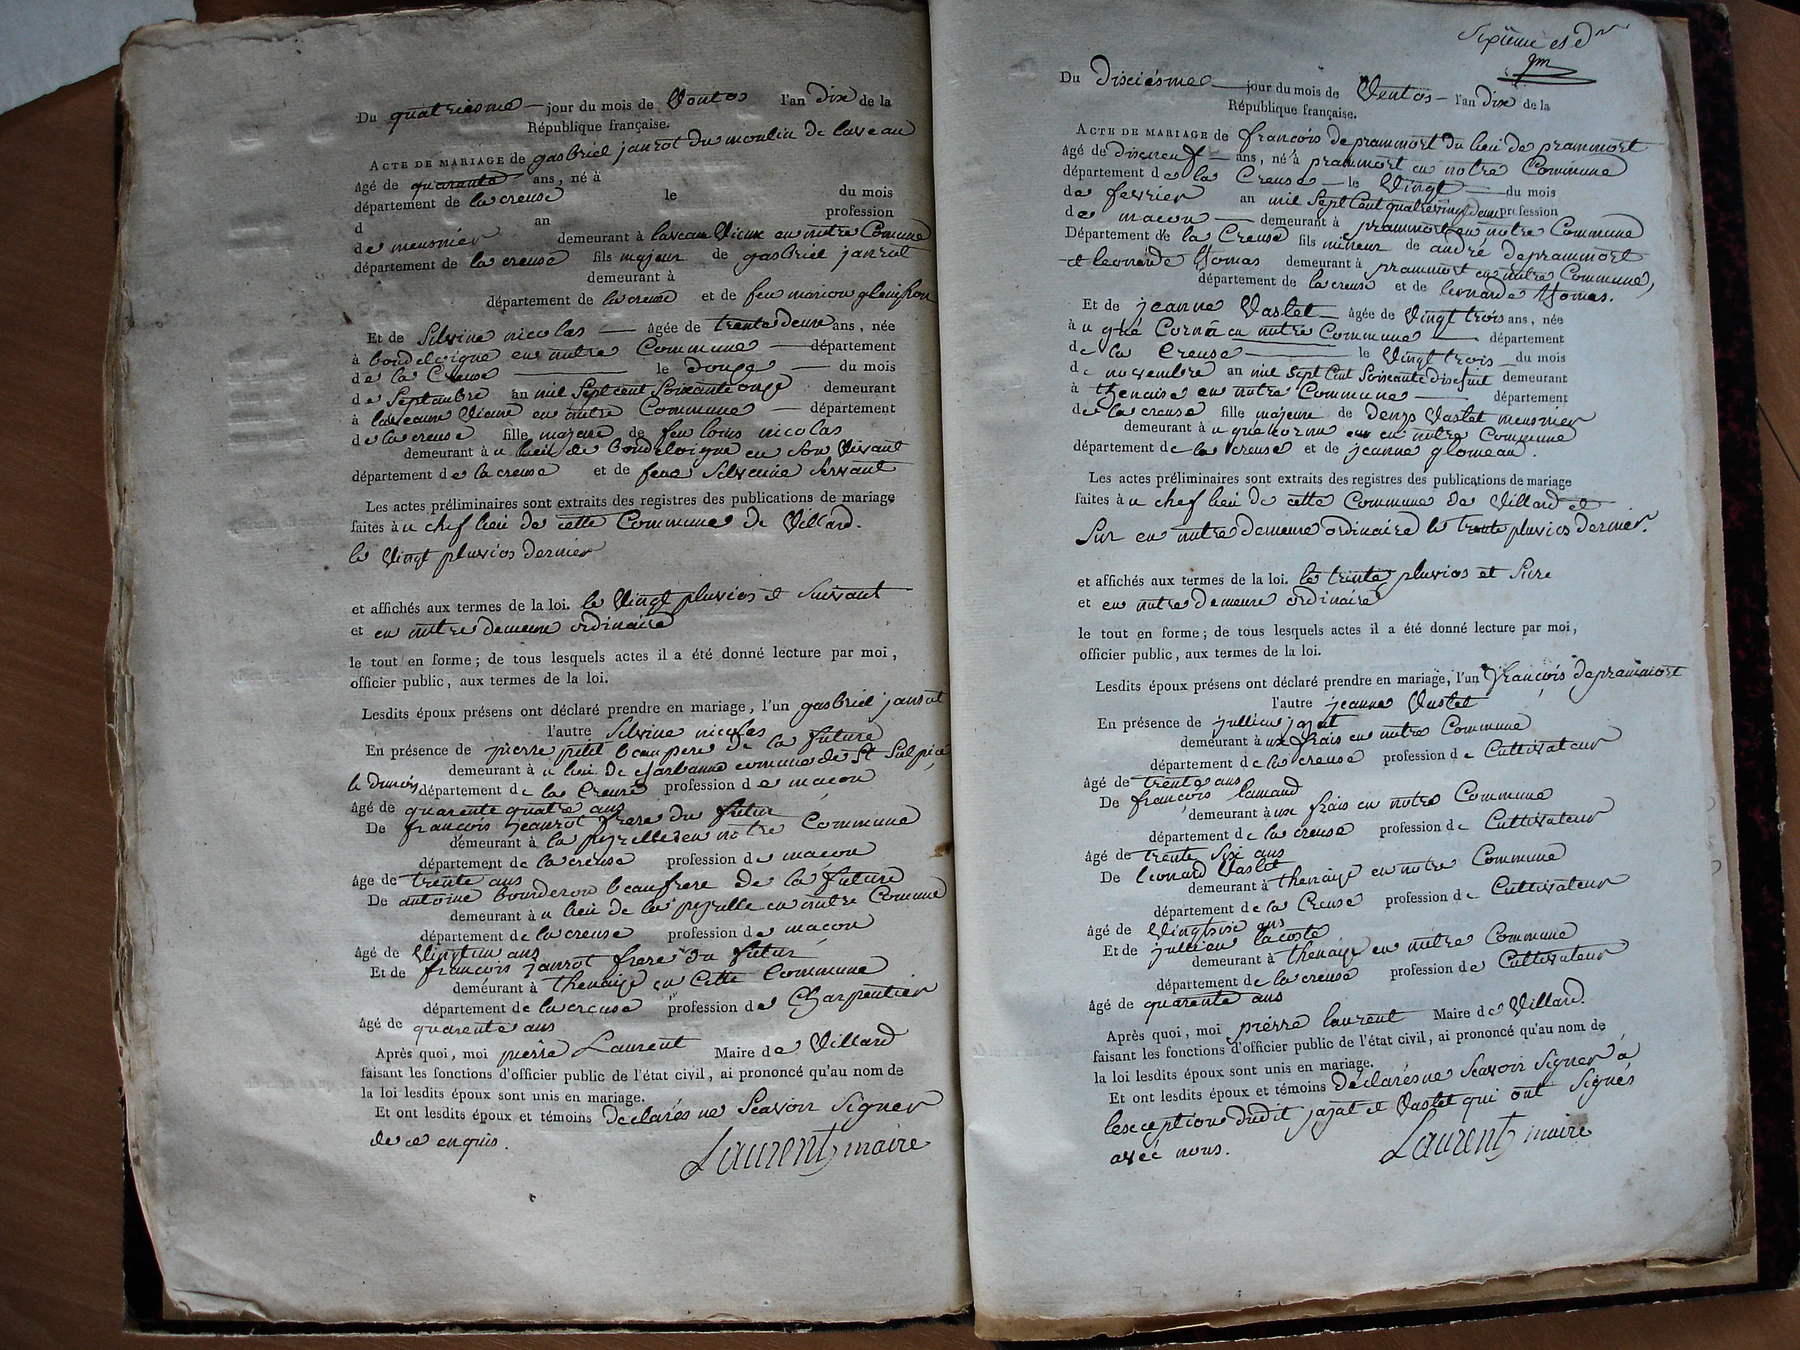 Du quatriesme jour du mois de Ventos l'an dix de la
République française.
ACTE DE MARIAGE de gasbriel janrot du moulin de laveau
âgé de quarante ans, né à
département de la creuse le du mois
d an profession
de meusnier demeurant à laveau Vieux en nôtre Comune
département de la creuse fils majeur de gasbriel janrot
demeurant à
département de la creuse et de feu marion
Et de Silvine nicolas âgée de trente deux ans, née
à en nôtre Commune département
de la Creuse le douze du mois
de Septembre an mil Sept cent Soixante onze demeurant
à en nôtre Commune département
de la creuse fille majeure de feu louis nicolas
demeurant à u lieu de en Son Vivant
département de la creuse et de feue Silvaine Servant
Les actes préliminaires sont extraits des registres des publications de mariage
faites à u chef lieu de cette Commune de Villard.
le Vingt pluvios dernier
et affichés aux termes de la loi. le Vingt pluvios et Suivant
et en nôtre demeure ordinaire
le tout en forme ; de tous lesquels actes il a été donné lecture par moi,
officier public, aux termes de la loi.
Lesdits époux présens ont déclaré prendre en mariage, l'un gasbriel janrot
l'autre Silvine nicolas
En présence de pierre petit beaupere de la future
demeurant à u lieu de comune de St Sulpice
le dunois département de la Creuse profession de macon
âgé de quarente quatre ans
De françois jeanrot frere du futur
demeurant à la en nôtre Commune
département de la creuse profession de macon
âge de trente ans
De antoine bourderon beaufrere de la future
demeurant à u lieu de la en nôtre Comune
département de la creuse profession de macon
âgé de Vingt un ans
Et de françois janrot frere du futur
demeurant à thenaize en Cette Commune
département de la creuse profession de Charpentier
âgé de quarente ans
Après quoi, moi pierre Laurent Maire de Villard
faisant les fonctions d'officier public de l'état civil, ai prononcé qu'au nom de
la loi lesdits époux sont unis en mariage.
Et ont lesdits époux et témoins déclarés ne Scavoir Signer
de ce enquis.
Laurent maire
Sixième et dr
Du Disciésme jour du mois de Ventos l'an dix de la
République française.
ACTE DE MARIAGE de françois deprammort du lieu de prammort
âgé de Discneuf ans, né à prammort en nôtre Commune
département de la Creuse le Vingt du mois
de fevrier an mil Sept Cent quatrevingt deux profession
de macon demeurant à prammort en nôtre Commune
Département de la Creuse fils mineur de andré deprammort
et leonarde tomas demeurant à prammort en nôtre Commune,
département de la creuse et de leonarde tomas.
Et de jeanne Vastet âgée de Vingt trois ans, née
à u gué Cornu en nôtre Commune département
de la Creuse le Vingt trois du mois
de novembre an mil Sept Cent Soixante discsuit demeurant
à thenaise en nôtre Commune département
de la creuse fille majeure de denys Vastet meusnier
demeurant à u gué cornu en nôtre Commune
département de la creuse et de jeanne glomeau.
Les actes préliminaires sont extraits des registres des publications de mariage
faites à u chef lieu de cette Commune de Villard et
Sur en nôtre demeure ordinaire le trente pluvios dernier.
et affichés aux termes de la loi. le trente pluvios et Sure
et en nôtre demeure ordinaire
le tout en forme ; de tous lesquels actes il a été donné lecture par moi,
officier public, aux termes de la loi.
Lesdits époux présens ont déclaré prendre en mariage, l'un françois deprammort
l'autre jeanne Vastet
En présence de jullien jazat
demeurant à ux frais en nôtre Commune
département de la creuse profession de Cultivateur
âgé de trente ans
De françois lamaud
demeurant à ux frais en nôtre Commune
département de la creuse profession de Cultivateur
âgé de trente Six ans
De leonard Vastet
demeurant à thenaize en nôtre Commune
département de la Creuse profession de Cultivateur
âgé de Vingt six ans
Et de jullien lacoste
demeurant à thenaize en nôtre Commune
département de la creuse profession de Cultivateur
âgé de quarente ans
Après quoi, moi pierre laurent Maire de Villard.
faisant les fonctions d'officier public de l'état civil, ai prononcé qu'au nom de
la loi lesdits époux sont unis en mariage.
Et ont lesdits époux et témoins déclarés ne Scavoir Signer à
lesception dudit jazat et Vastet qui ont Signés
avec nous.
Laurent maire